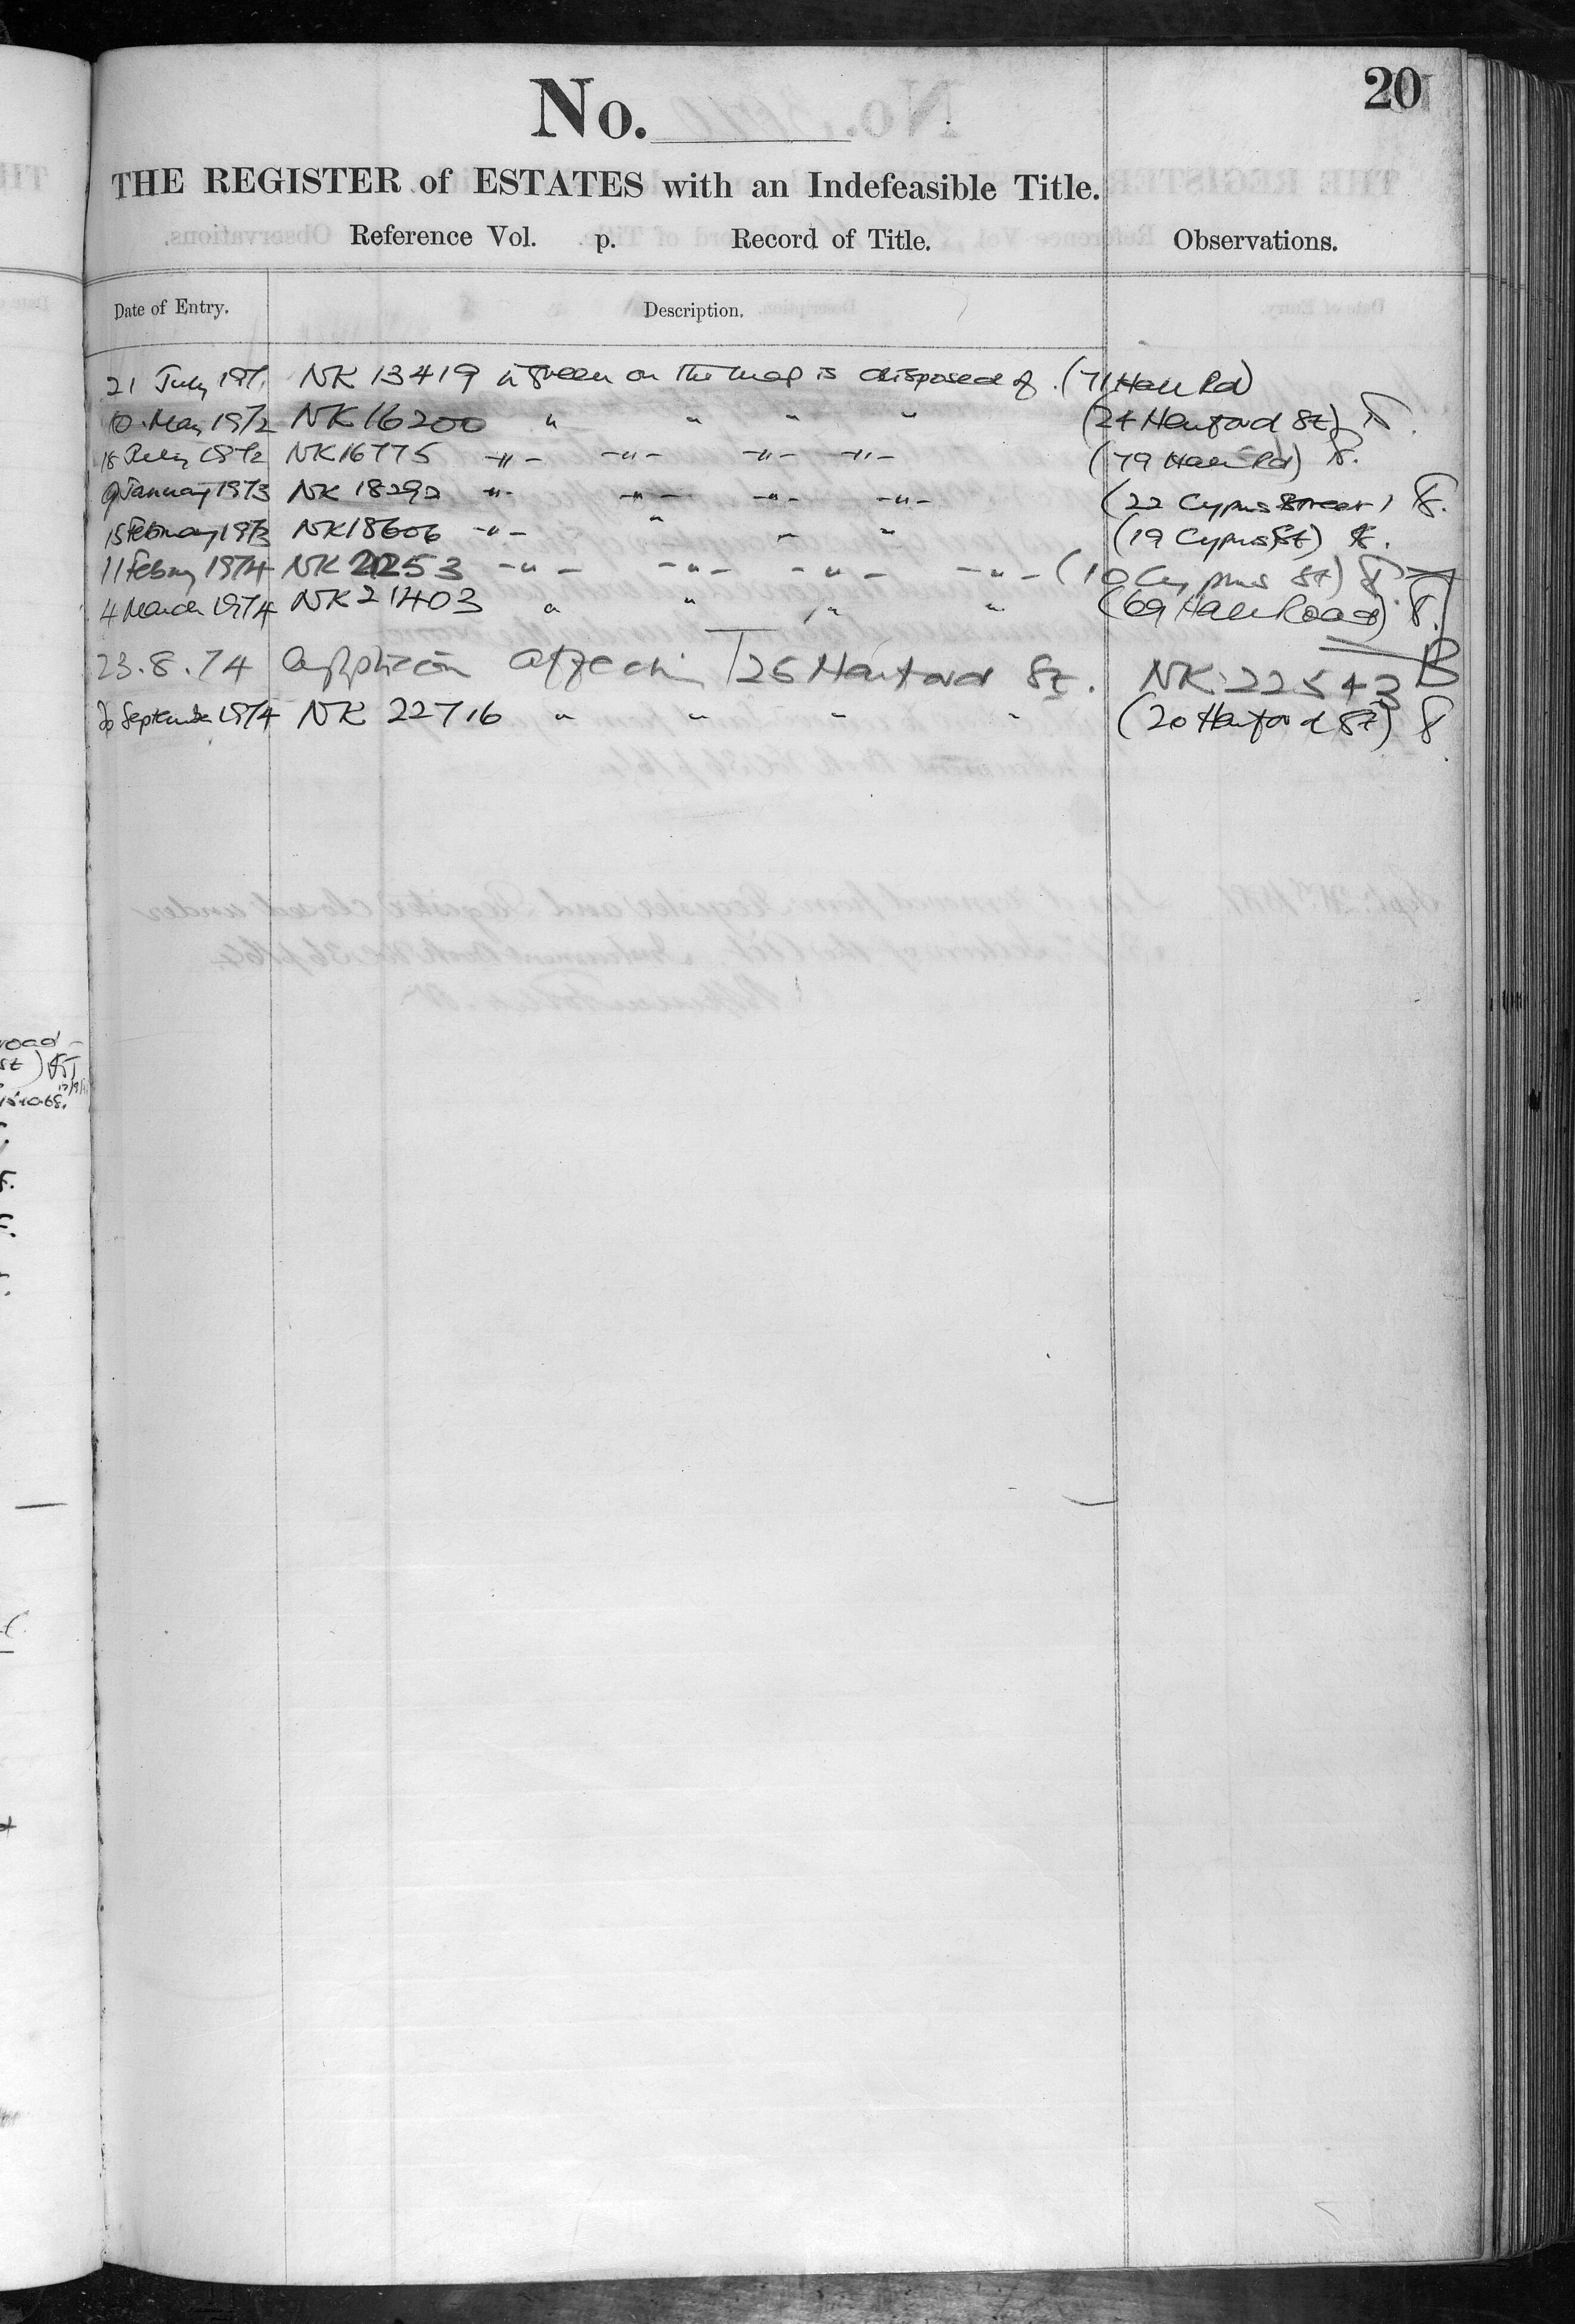 20
No.
THE REGISTER of ESTATES with an Indefeasible Title.
Reference Vol. p. Record of Title. Observations.
Date of Entry. Description.
21 July 1971 NK 13419 in green on the map is disposed of. (71 Hall Rd)
10 May 1972 NK 16200 " " " " (24 Hanford St)
18 July 1972 NK 16775 -"- -"- -"- -"- (79 Hall Rd)
9 January 1973 NK 18292 -"- -"- -"- -"- (22 Cyprus Street)
15 February 1973 NK 18606 -"- " " " (19 Cyprus St)
11 Febry 1974 NK 21253 -"- -"- -"- -"- (10 Cyprus St)
4 March 1974 NK 21403 " " " " (69 Hall Road)
23.8.74 Application affecting 25 Hanford St. NK 22543
September 1974 NK 22716 " " " " (20 Hanford St)
road
St)